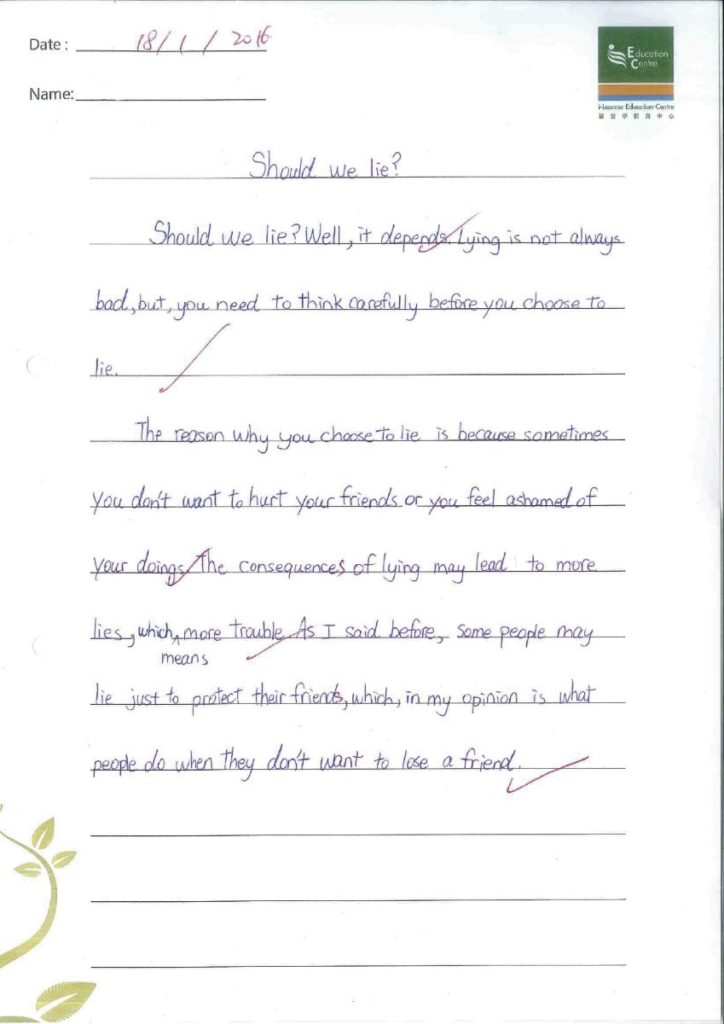 Date : 18/1/2016
Education
Centre
i-Learner Education Centre
Name:
Should we lie?
Should we lie? Well, it depends. Lying is not always
bad, but, you need to think carefully before you choose to
lie.
The reason why you choose to lie is because sometimes
you don't want to hurt your friends or you feel ashamed of
your doings. The consequences of lying may lead to more
lies, which ^ more trouble. As I said before, some people may
means
lie just to protect their friends, which, in my opinion is what
people do when they don't want to lose a friend.